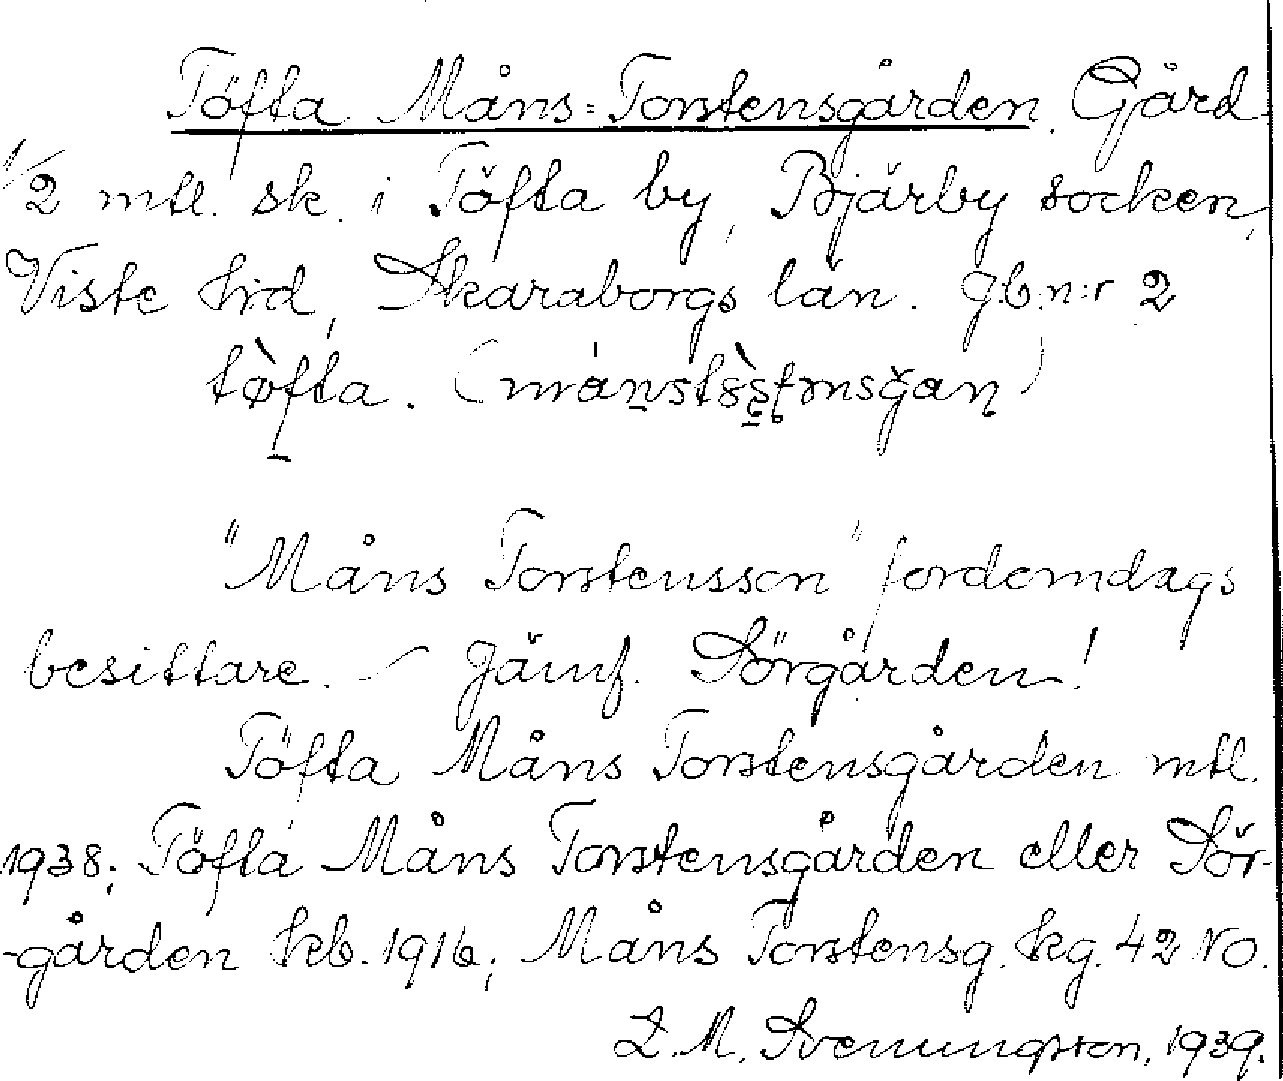 Töfta Måns-Torstensgården. Gård
1/2 mtl. sk. i Töfta by, Bjärby socken,
Viste hrd, Skaraborgs län. Jb.n:r 2
tòfta.
"Måns Torstensson" fordomdags
besittare. – Jämf. Sörgården!
Töfta Måns Torstensgården mtl.
1938; Töfta Måns Torstensgården eller Sör-
-gården hkb. 1916; Måns Torstensg. kg. 42 NO.
L. M. Svenungsson, 1939.